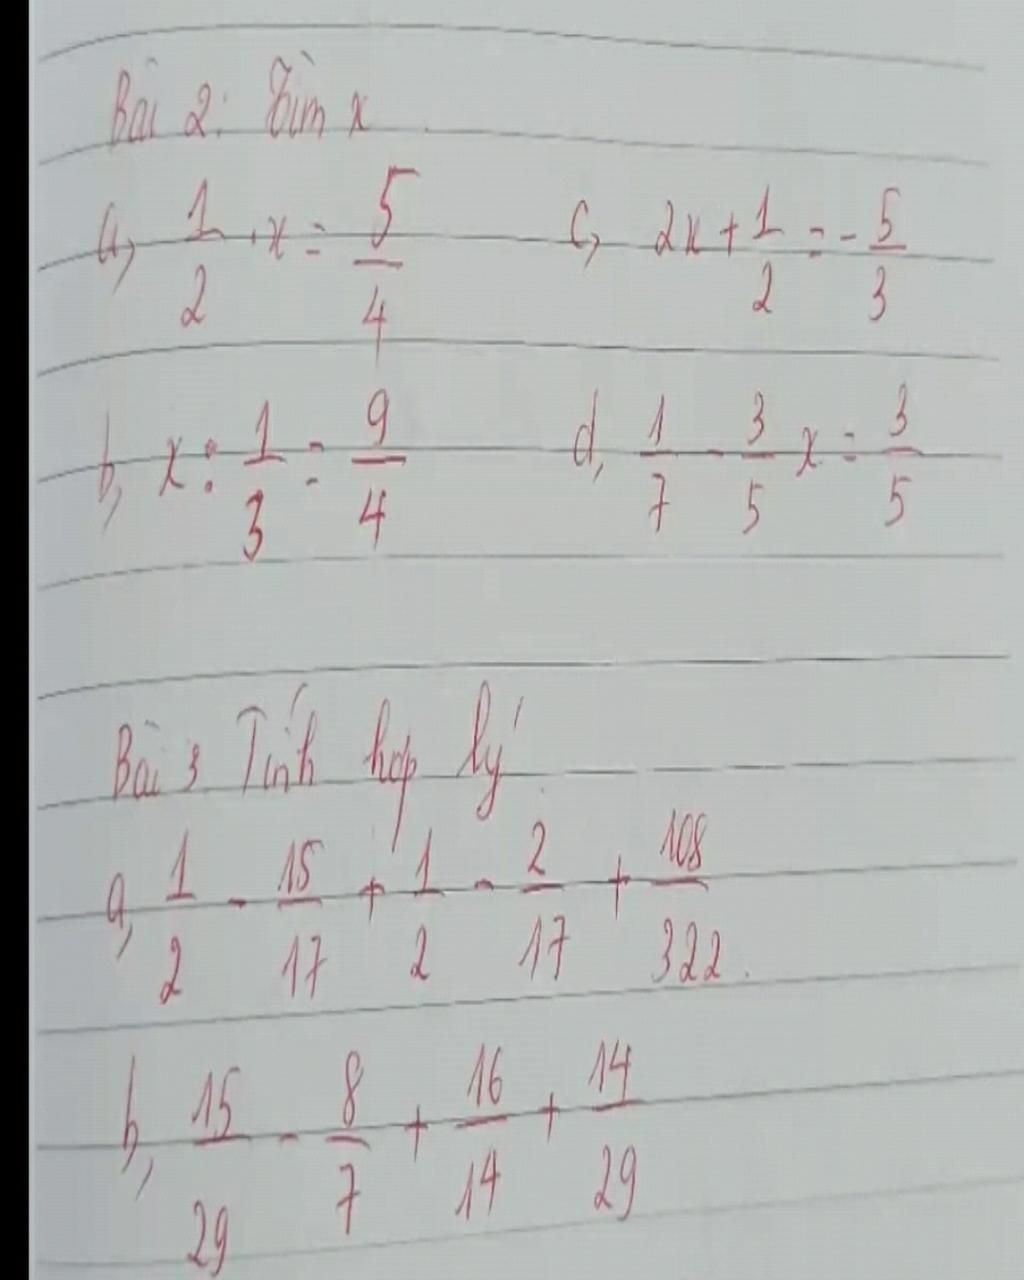 Bài 2: Tìm x
a, 1/2 . x = 5/4 c, 2x + 1/2 = - 5/3
b, x : 1/3 = 9/4 d, 1/7 - 3/5 x = 3/5
Bài 3 Tính hợp lý
a, 1/2 - 15/17 + 1/2 - 2/17 + 108/322.
b, 15/29 - 8/7 + 16/14 + 14/29